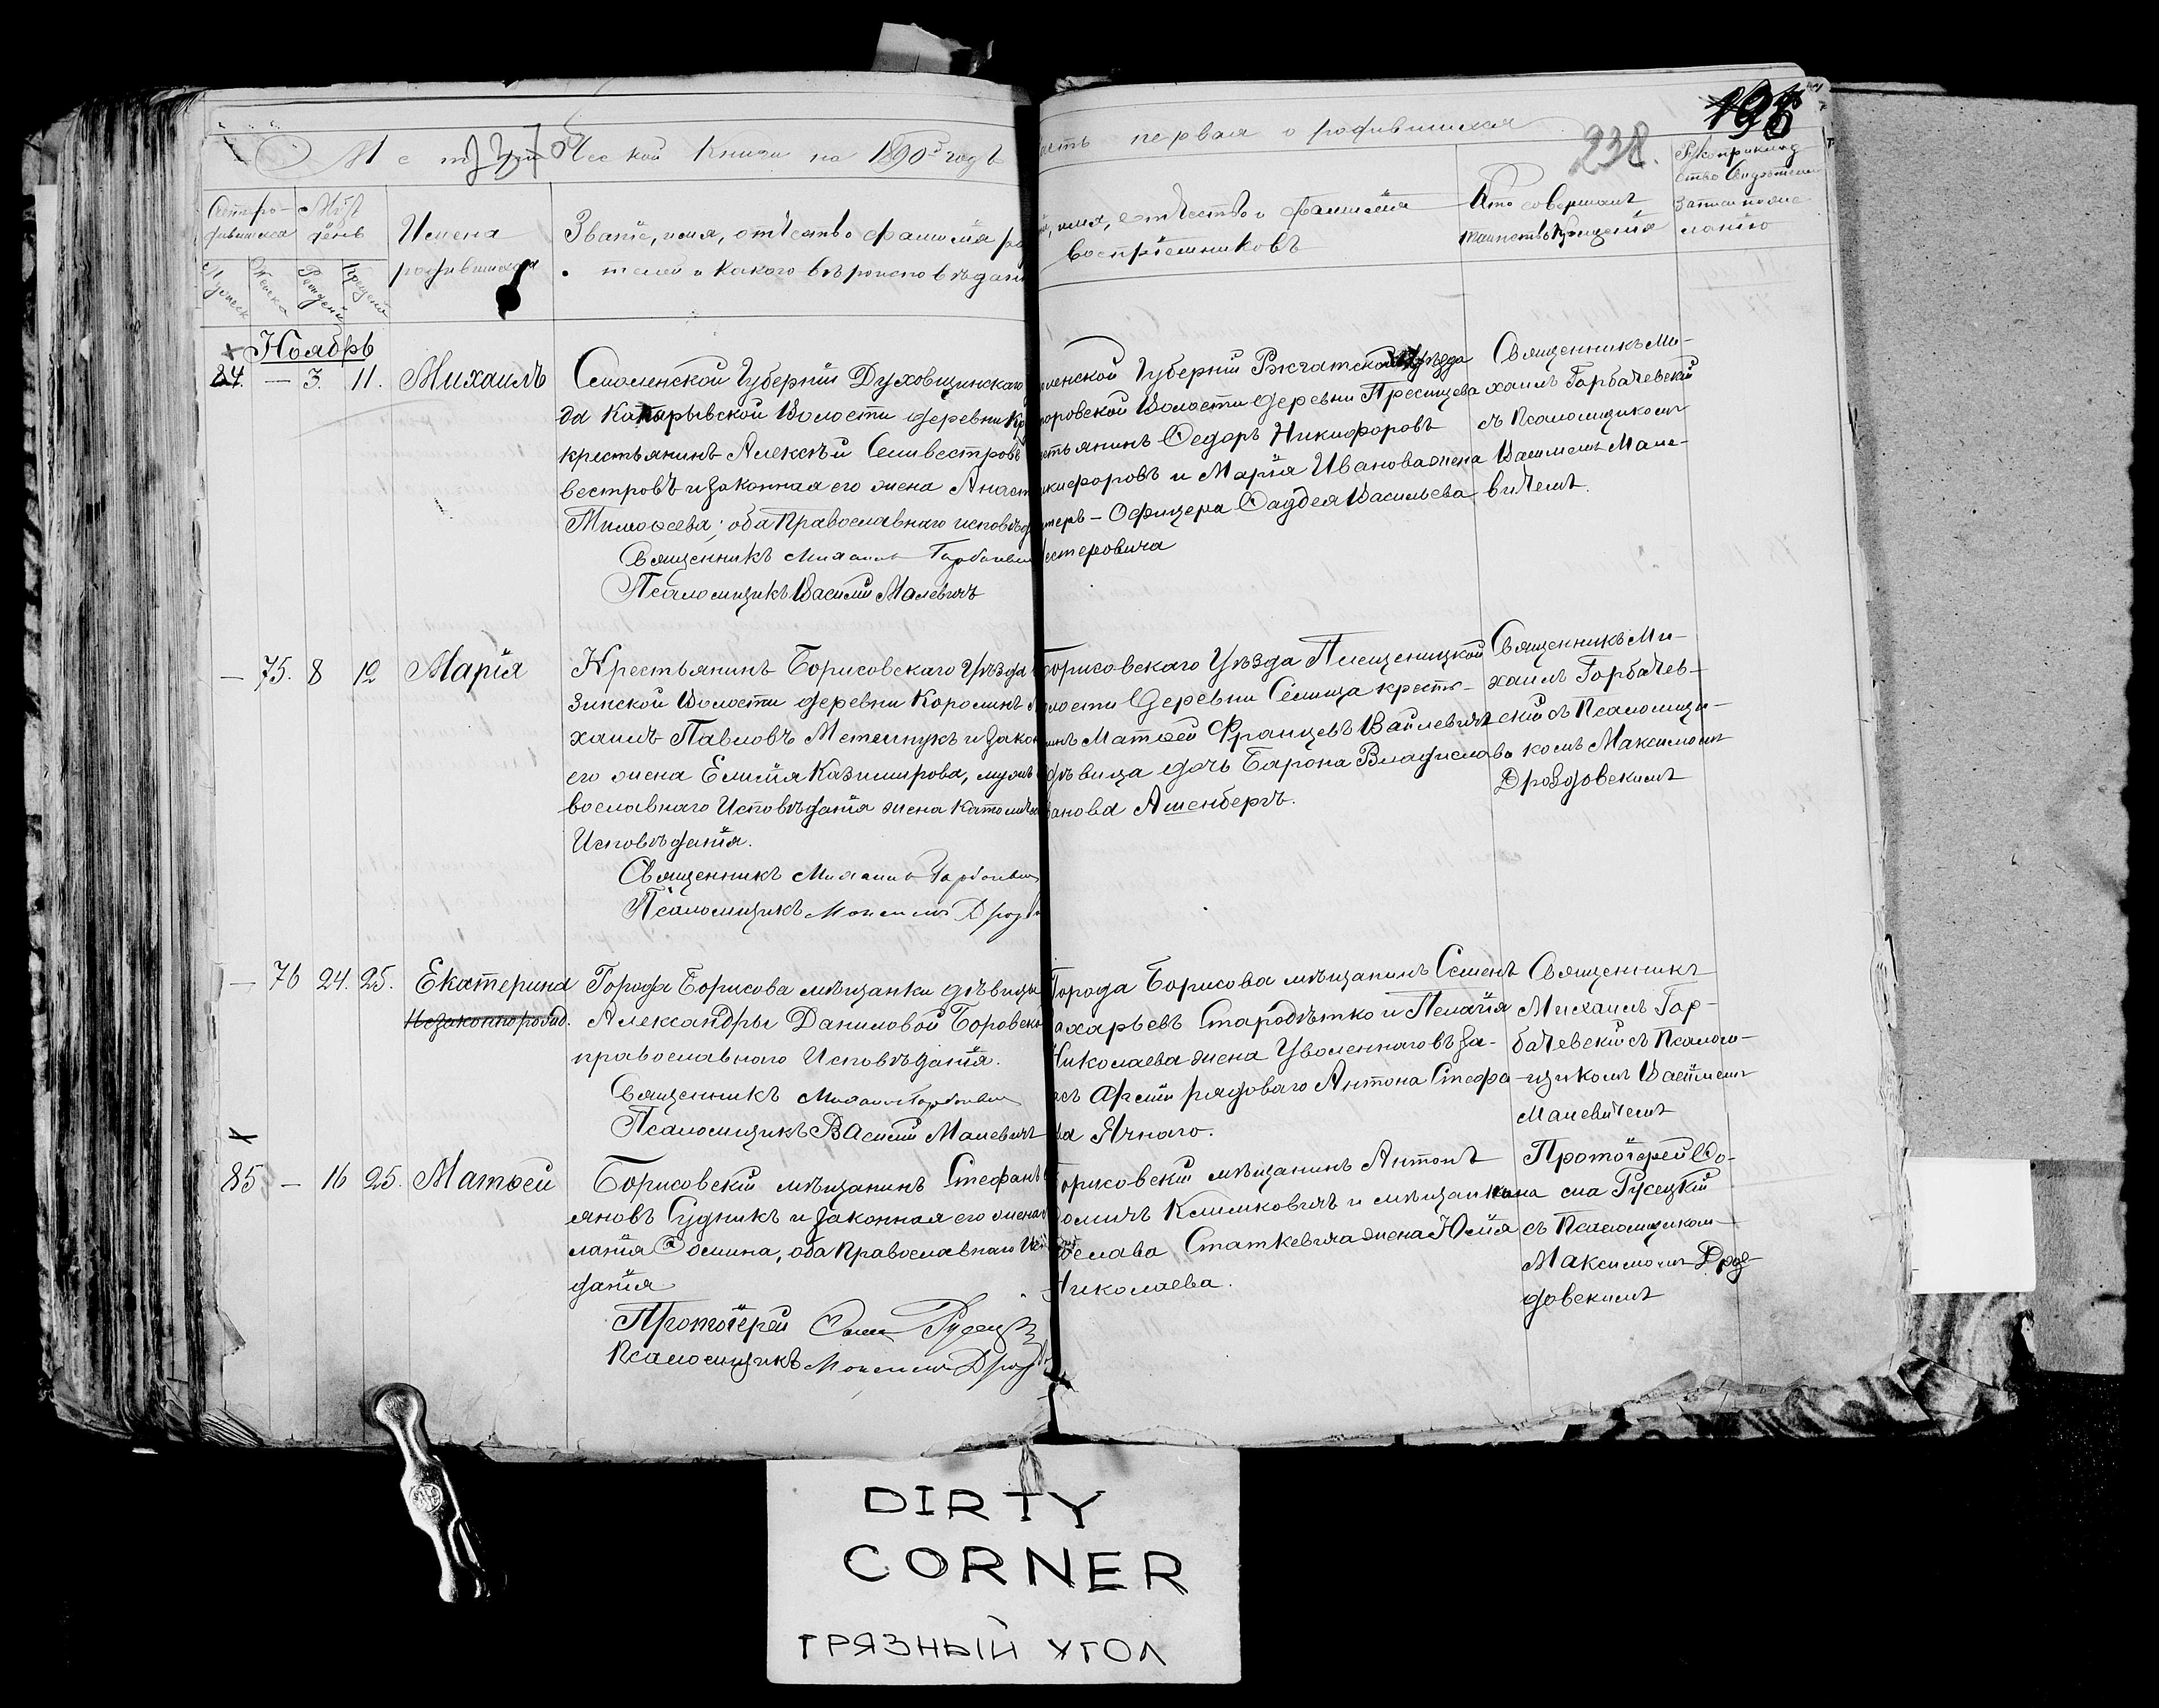 Метрической книги на 1890й годъ
часть первая о родившихся
238.
Счетъ ро-
дившихся
день
Имена
родившихся
Званіе, имя, отчество и фамилія ро
телей и какого вѣроисповѣдані
имя, отчество и фамилія
воспріемниковъ
Кто совершалъ
таинство крещенія
Рукоприклад
ство свидѣтелей
записи по же
ланію
Ноябрь
84. — 3. 11. Михаилъ
Смоленской Губерніи Духовщинскаго
да Капыръвской Волости деревни Кр
крестьянинъ Алексѣй Сельвестровъ
вестровъ и законная его жена Анаст
Тимоѳеева; оба Православнаго исповѣд
Священникъ Михаилъ Горбачевск
Псаломщикъ Василій Малевичъ
ленской Губерніи Уѣзда
оровской Волости деревни Пресищева
стьянинъ Ѳедоръ Никифоровъ
икифоровъ и Марія Иванова жена
теръ-Офицера Ѳаддея Васильева
естеровича
Священникъ Ми-
хаилъ Горбачевскій
съ Псаломщикомъ
Василіемъ Мале-
вичемъ.
— 75. 8 12 Марія
Крестьянинъ Борисовскаго Уѣзда
зинской Волости деревни Королинъ
хаилъ Павловъ Метельчукъ и закон
его жена Емилія Казимирова, мужъ
вославнаго Исповѣданія жена католическ
Исповѣданія.
Священникъ Михаилъ Горбачевск
Псаломщикъ Максимъ Дрозд
Борисовскаго Уѣзда Плещеницкой
лости Деревни Селища кресть-
инъ Матѳей Францевъ Вайлевичъ
дѣвица дочь Барона Владислава
ванова Ашенбергъ.
Священникъ Ми-
хаилъ Горбачев-
скій съ Псаломщи-
комъ Максимомъ
Дроздовскимъ
— 76 24. 25. Екатерина
Незаконнорожд.
Города Борисова мѣщанки дѣвицы
Александры Даниловой Боровско
православнаго Исповѣданія.
Священникъ Михаилъ Горбачевск
Псаломщикъ Василій Малевичъ
Города Борисова мѣщанинъ Семенъ
ахарьевъ Стародѣтко и Пелагія
Николаева жена Уволеннаго въ За-
асъ Арміи рядоваго Антона Стефа-
ва Ячнаго.
Священникъ
Михаилъ Гор-
бачевскій съ Псалом-
щикомъ Василіемъ
Малевичемъ
85 — 16 25. Матѳей
Борисовскій мѣщанинъ Стефанъ
яновъ Судникъ и законная его жена
лагія Ѳомина, оба Православнаго Испо
данія
Протоіерей Руцецкій
Псаломщикъ Максимъ Дрозд
Борисовскій мѣщанинъ Антонъ
омичъ Климковичъ и мѣщанина
ослава Статкевича жена Юлія
Николаева.
Протоіерей Ѳо-
ма Русецкій
съ Псаломщиком
Максимомъ Дроз-
довскимъ
DIRTY
CORNER
ГРЯЗНЫЙ УГОЛ